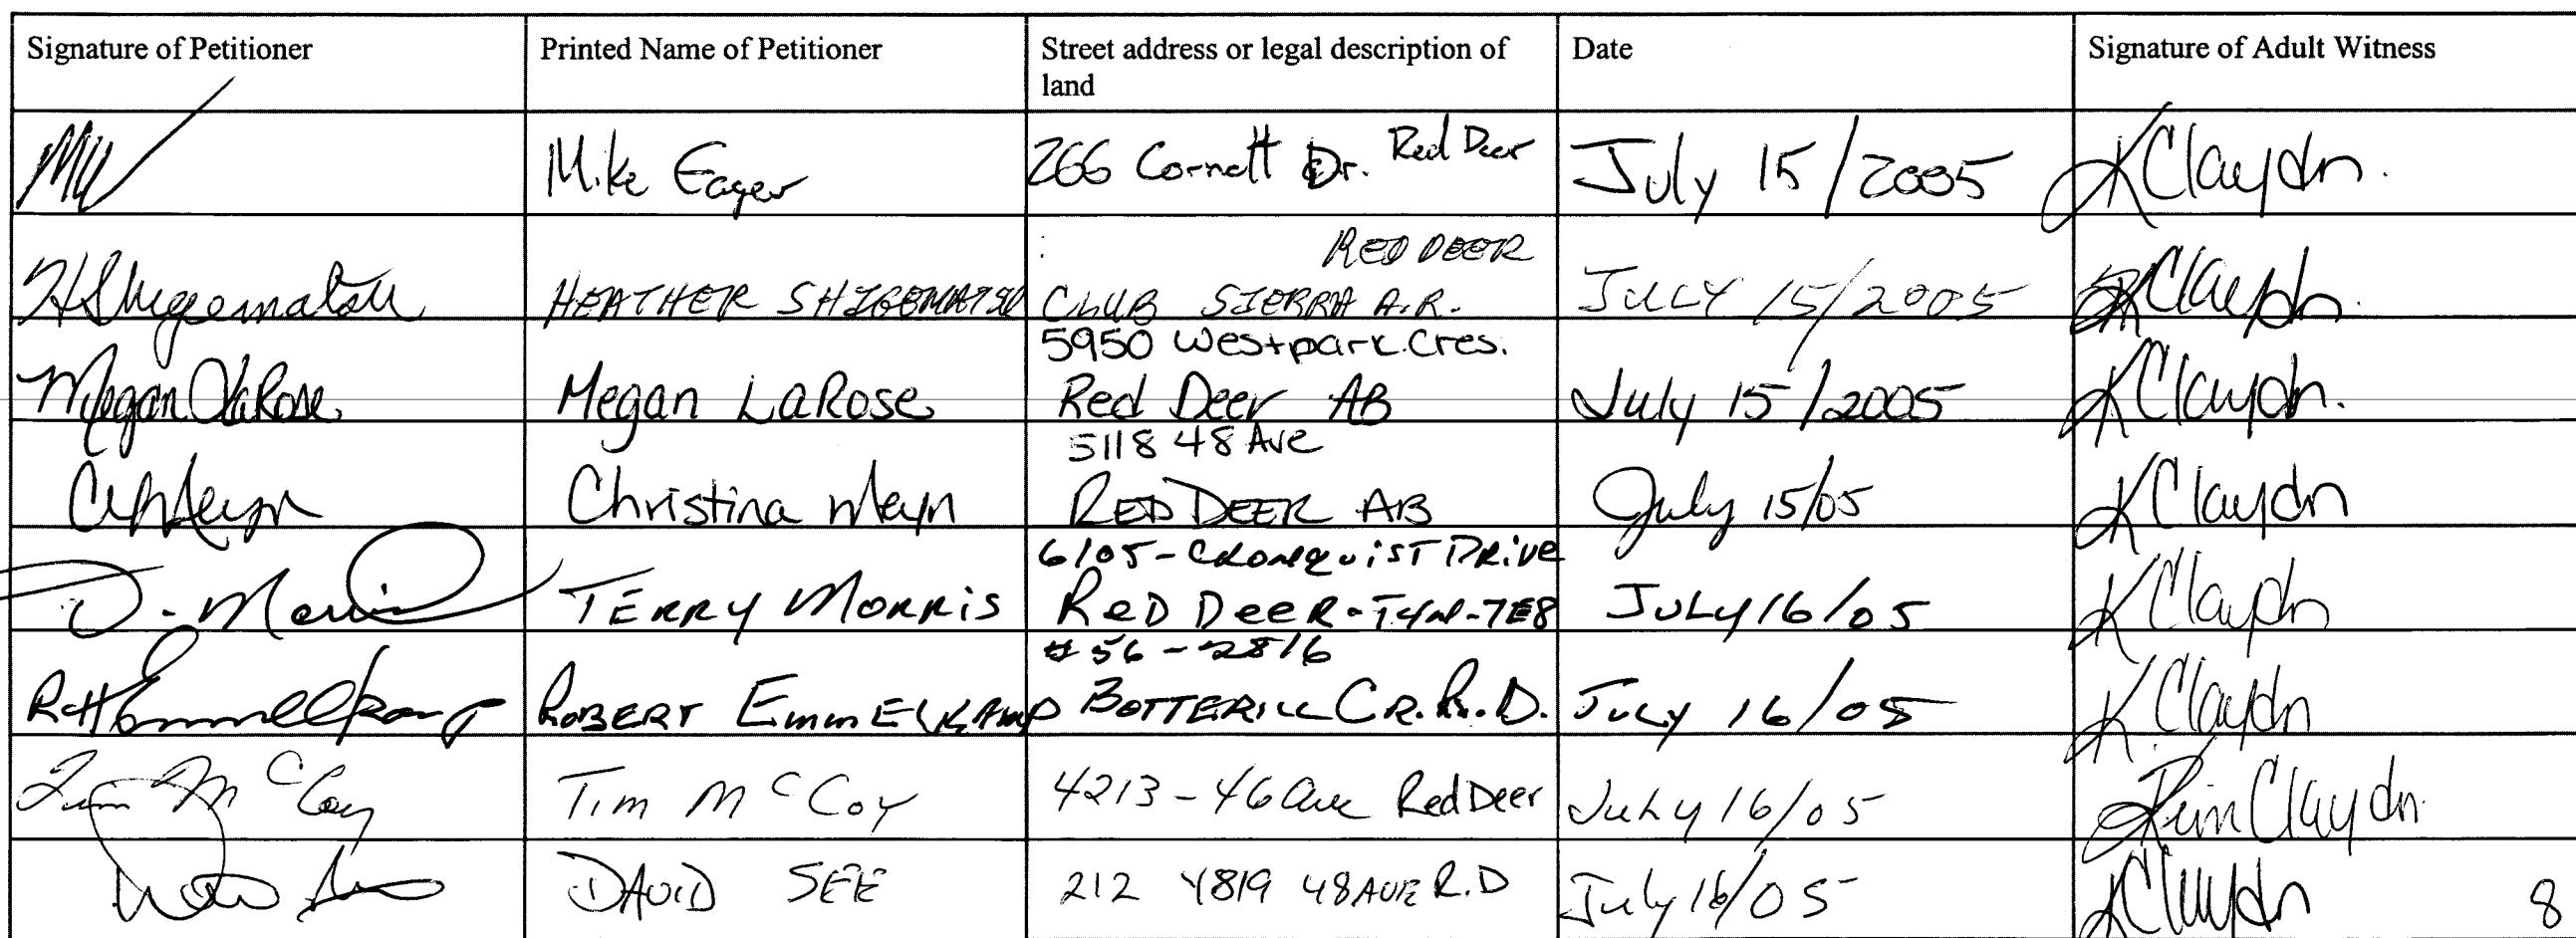 Signature of Petitioner
Printed Name of Petitioner
Street address or legal description of
land
Date
Signature of Adult Witness
Mike Eager
266 Cornett Dr. Red Deer
July 15/2005
KClaydn.
HShigematsu
HEATHER SHIGEMATSU
RED DEER
CLUB SIERRA A.R.
JULY 15/2005
KClaydn.
Megan LaRose
Megan LaRose
5950 Westpark Cres.
Red Deer AB
July 15/2005
KClaydn.
CMeyn
Christina Meyn
5118 48 Ave
RED DEER AB
July 15/05
KClaydn
Morris
TERRY MORRIS
6105-CRONQUIST DRIVE
RED DEER-T4N-7E8
JULY 16/05
KClaydn
RHEmmelkamp
ROBERT EmmELKAMP
#56-2816
BOTTERILL CR. R.D.
JULY 16/05
KClaydn
Tim McCoy
Tim McCoy
4213-46 Ave Red Deer
JULY 16/05
Kim Claydn
DAVID SEE
212 4819 48 AVE R.D
July 16/05
KClaydn
8